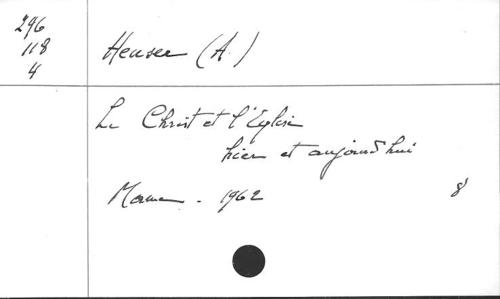 296
118
4
Heuser (A.)
Le Christ et l'Eglise
hier et aujourd'hui
Mame - 1962
8°